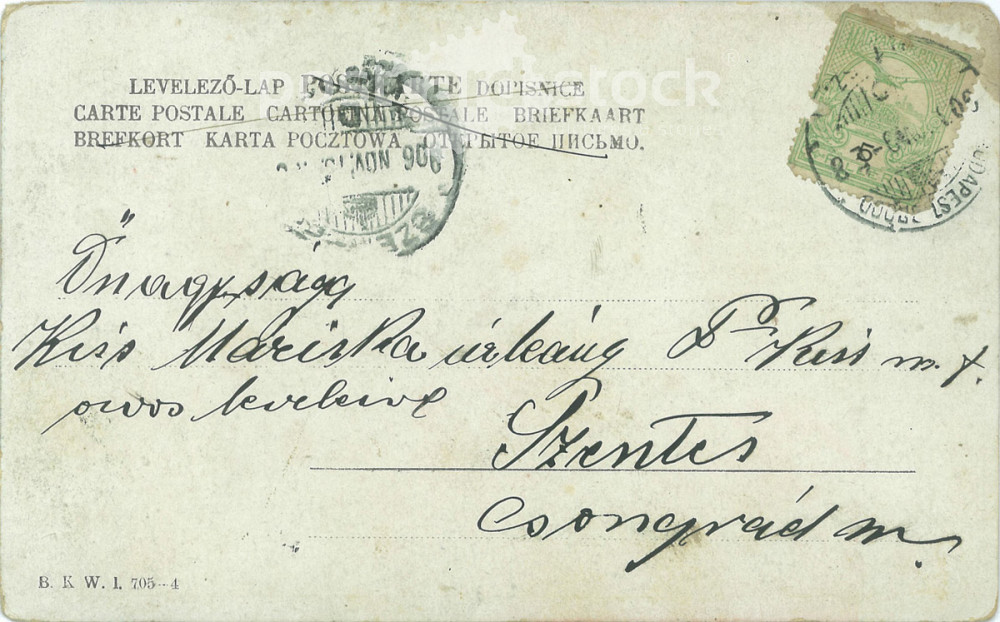 LEVELEZŐ-LAP POSTKARTE DOPISNICE
CARTE POSTALE CARTOLINA POSTALE BRIEFKAART
BREFKORT KARTA POCZTOWA ОТКРЫТОЕ ПИСЬМО.
906 NOV
BUDAPEST
Őnagysága
Kiss Mariska úrleány Dr Kiss m. f.
orvos
Szentes
Csongrád m.
B. K. W. I. 705-4